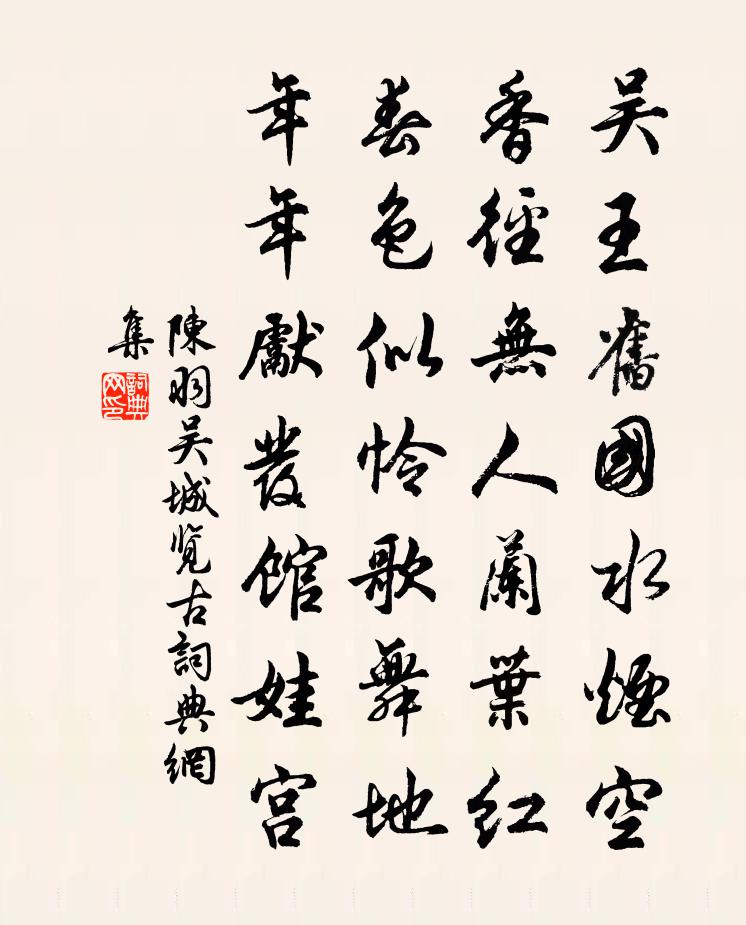 吴王舊國水煙空
香徑無人蘭葉紅
春色似怜歌舞地
年年獻發館娃宫
陳羽吴城览古詞典網
集
詞典网印